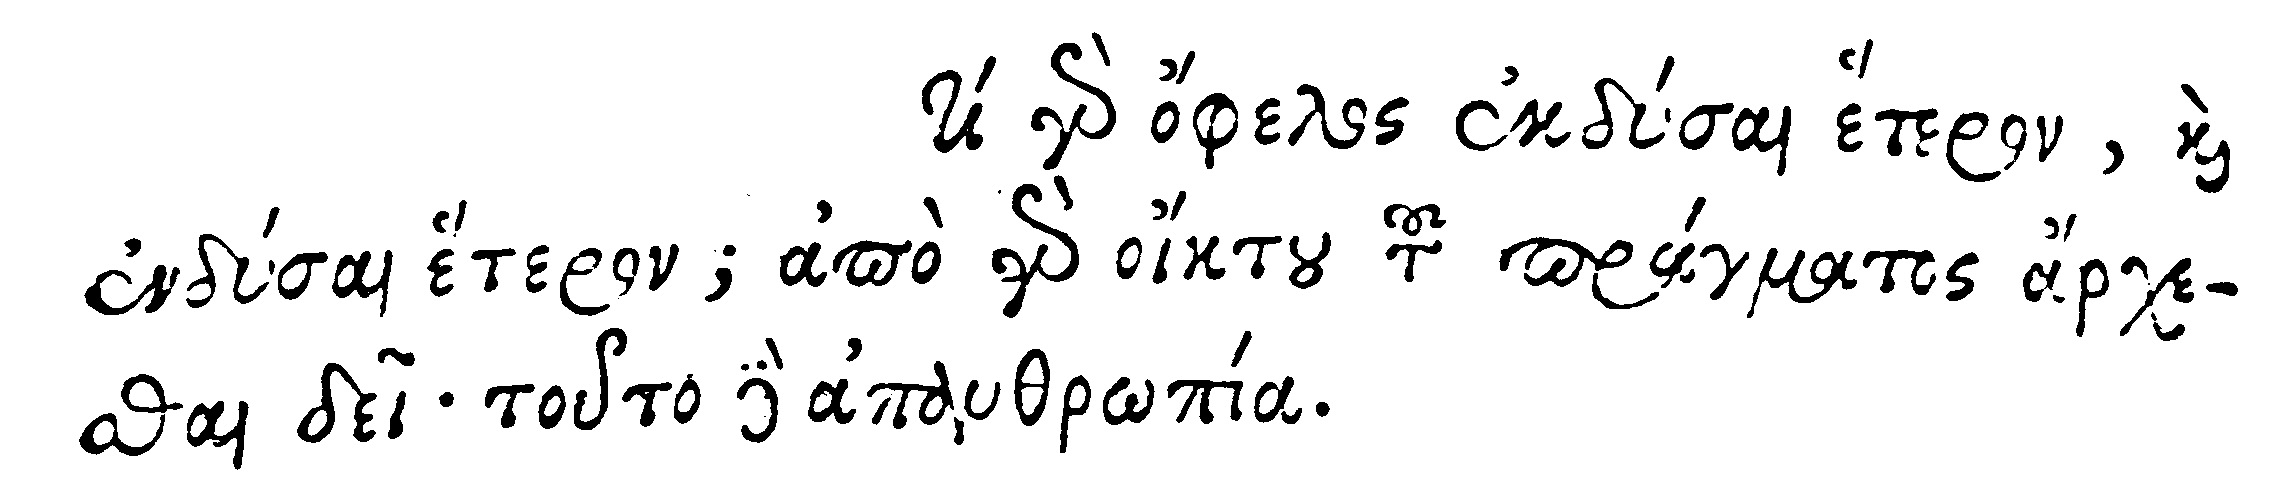 Τί γὰρ ὄφελος ἐκδύσαι ἕτερον, καὶ
ἐνδύσαι ἕτερον; ἀπὸ γὰρ οἴκτου τοῦ πράγματος ἄρχε-
σθαι δεῖ· τοῦτο γὰρ ἀπανθρωπία.